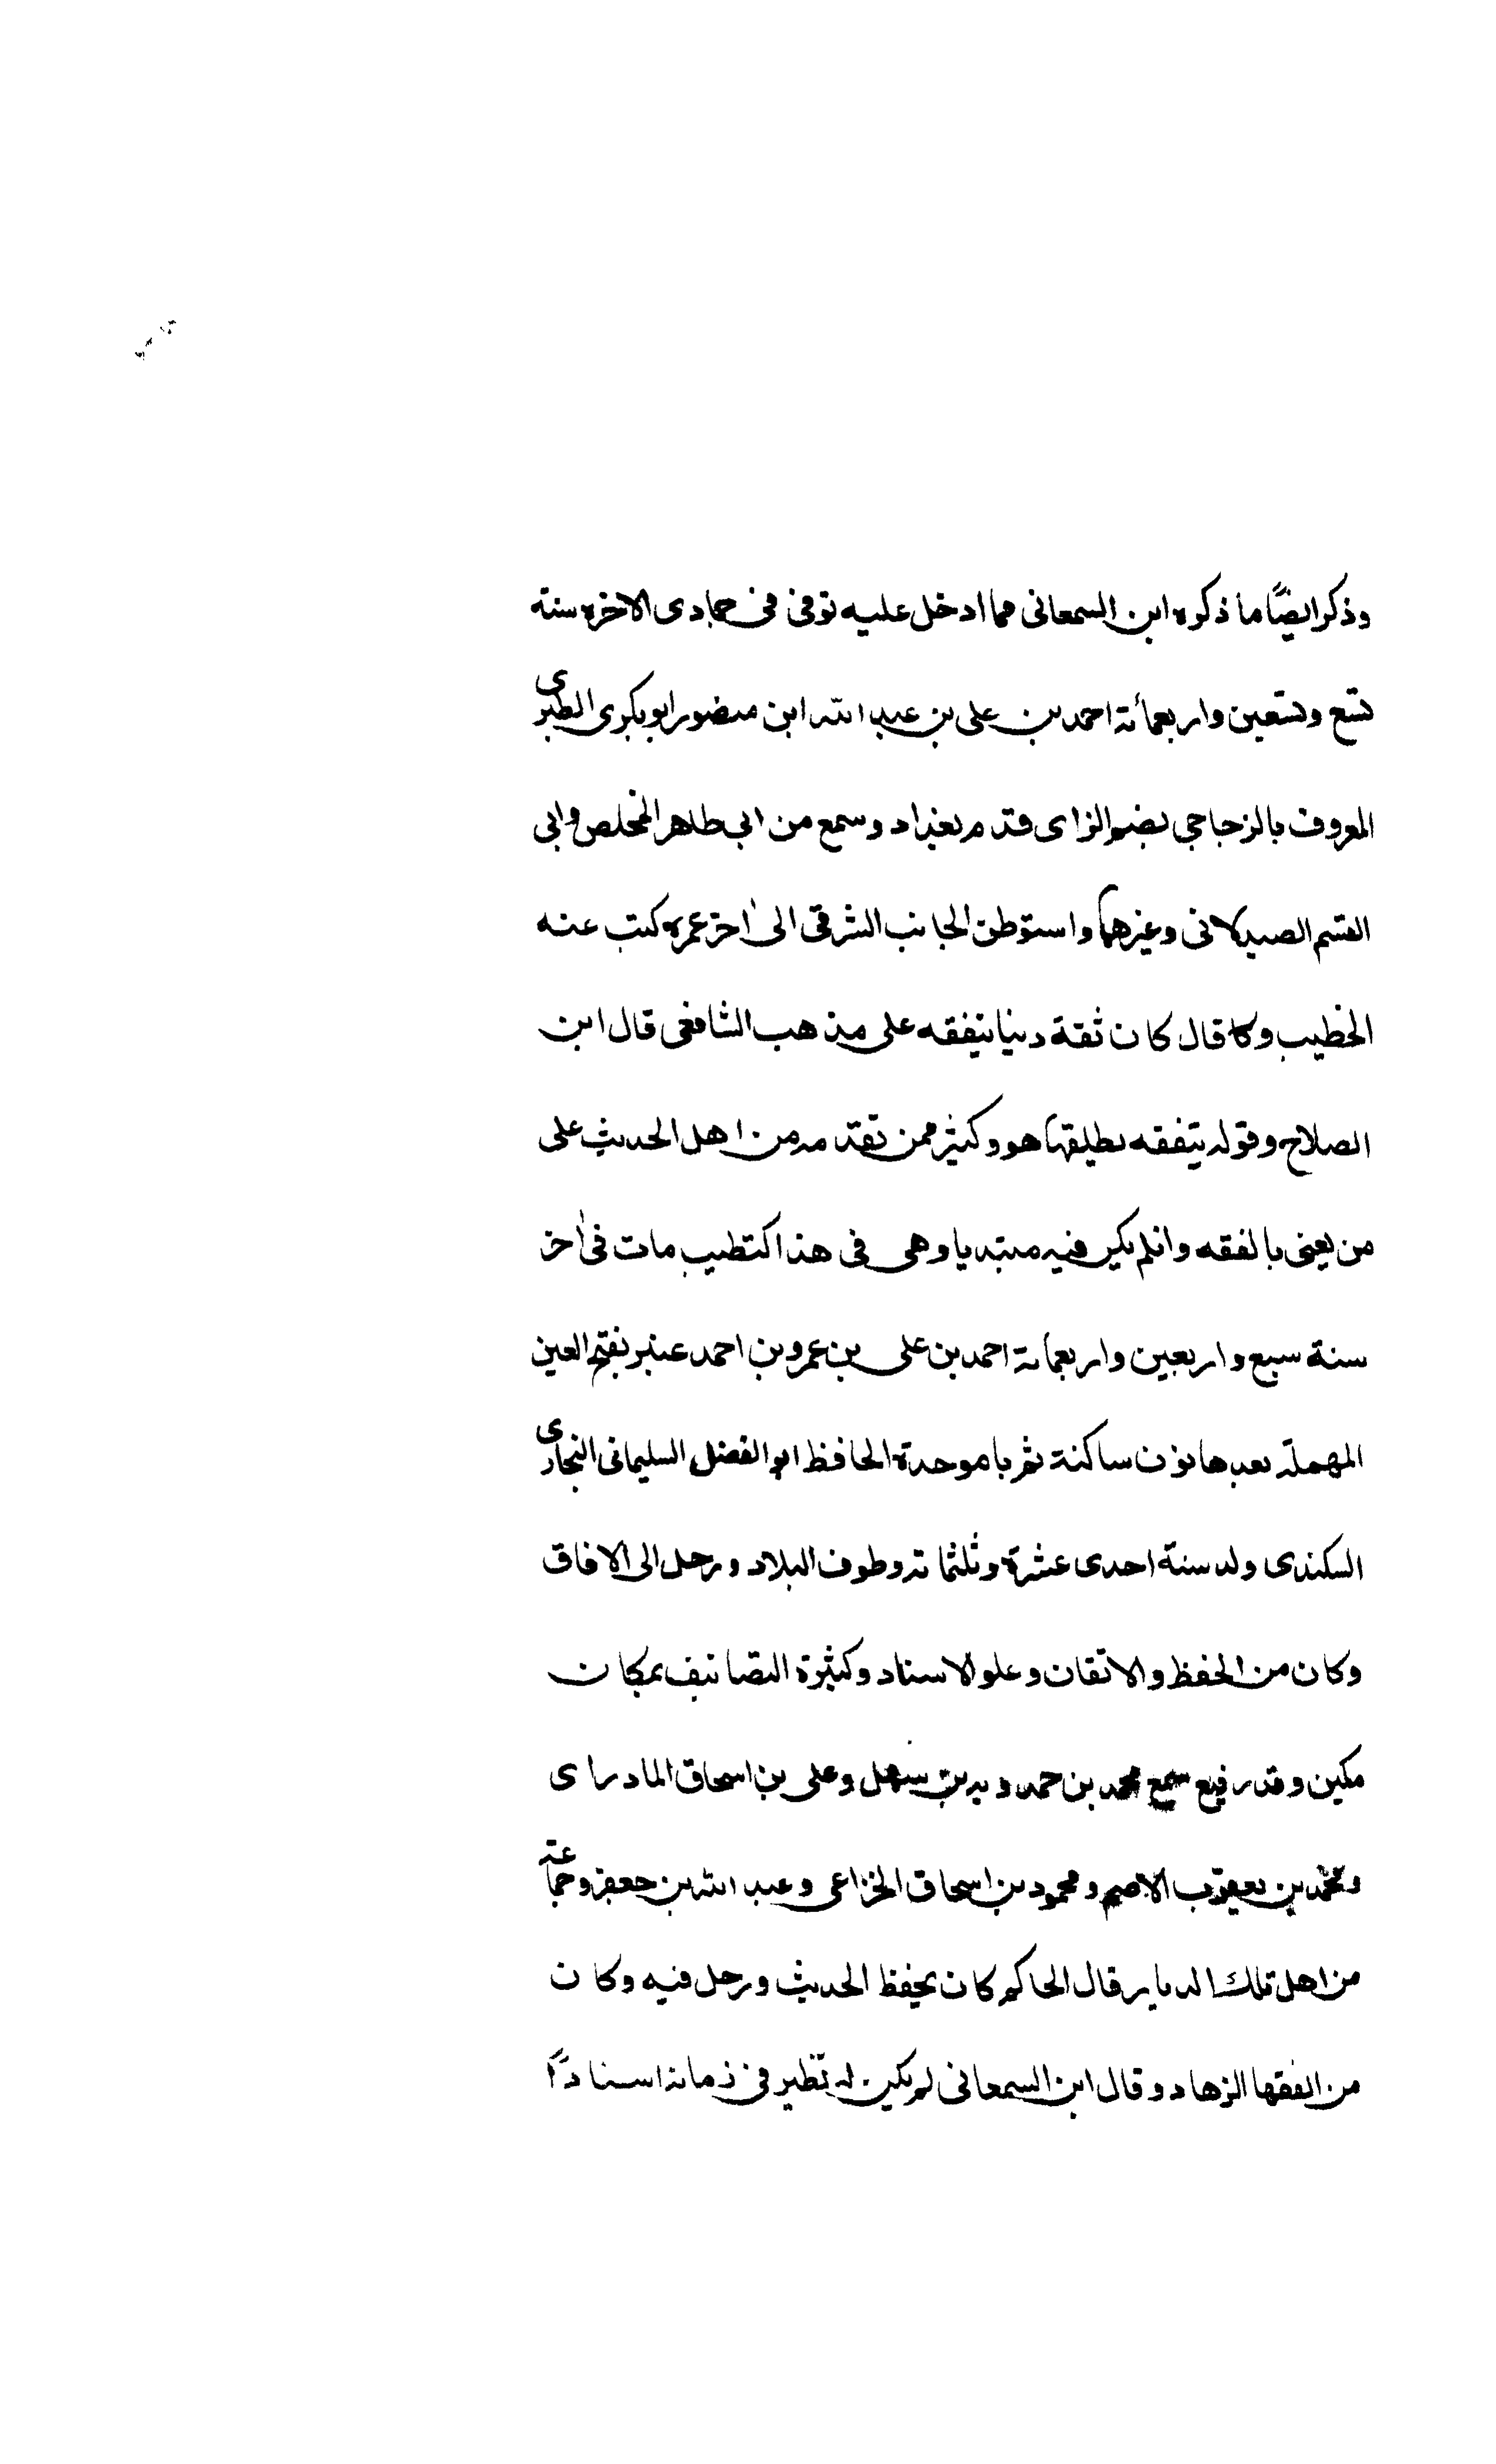 وذكر ايضًا ما ذكره ابن السمعانى مما ادخل عليه توفى فى جمادى الاخره سنة
تسع وتسعين واربعمائة احمد بن على بن عبد الله ابن منصور ابو بكرى الطبرى
المعروف بالزجاجى بضم الزاى قدم بغداد وسمع من ابى طاهر المخلص وابى
القسم الصيدلانى وغيرهما واستوطن الجانب الشرقى الى اخر عمره كتب عنه
الخطيب وكا قال كان ثقة دينا يتفقه على مذهب الشافعى قال ابن
الصلاح وقوله يتفقه يطلقها هو وكثير ممن تقدمه من اهل الحديث على
من يعنى بالفقه وانلم يكن فيه مبتديا وهى فى هذا كتطيب مات فى اخر
سنة سبع واربعين واربعمائة احمد بن على بن عمرو بن احمد عنبر بفتح العين
المهملة بعدها نون ساكنة ثم با موحدة الحافظ ابو الفضل السليمانى البخارى
السكندى ولد سنة احدى عشرة وثلثمائة وطوف البلاد ورحل الى الافاق
وكان من الحفظ والاتقان وعلو الاسناد وكثيرة التصانيف بمكان
مكين وقدر فيع سمع محمد بن حمدويه بن سهل وعلى بن اسحاق المادراى
ومحمد بن يعقوب الاصم ومحمود بن اسحاق الخزاعى وعبد الله بن جعفر وجماعة
من اهل تلك الديار قال الحاكم كان يحفظ الحديث ورحل فيه وكان
من الفقها الزهاد وقال ابن السمعانى لم يكن له نظير فى زمانه اسنادًا